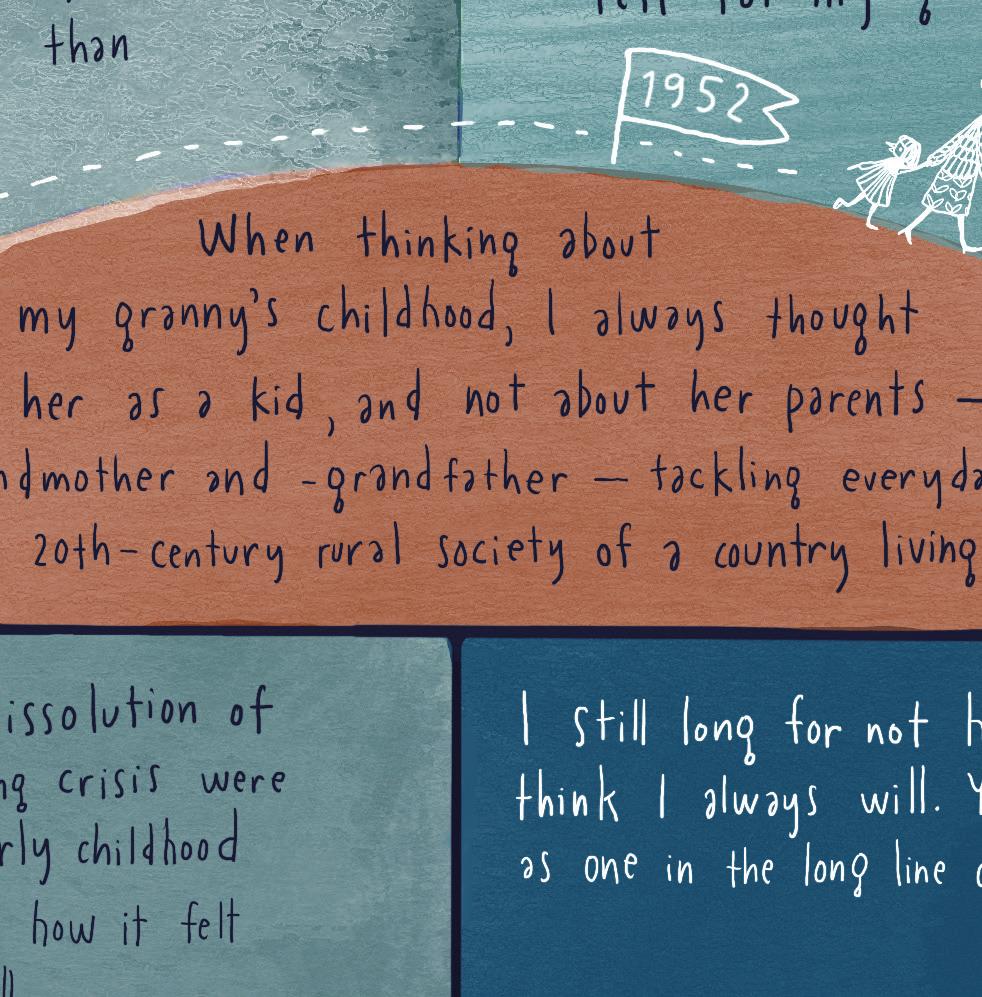 than
for my
1952
When thinking about
my granny's childhood, I always thought
her as a kid, and not about her parents —
and -grandfather — tackling
20th-century rural society of a country living
of
crisis were
childhood
how it felt
I still long for not
think I always will.
as one in the long line